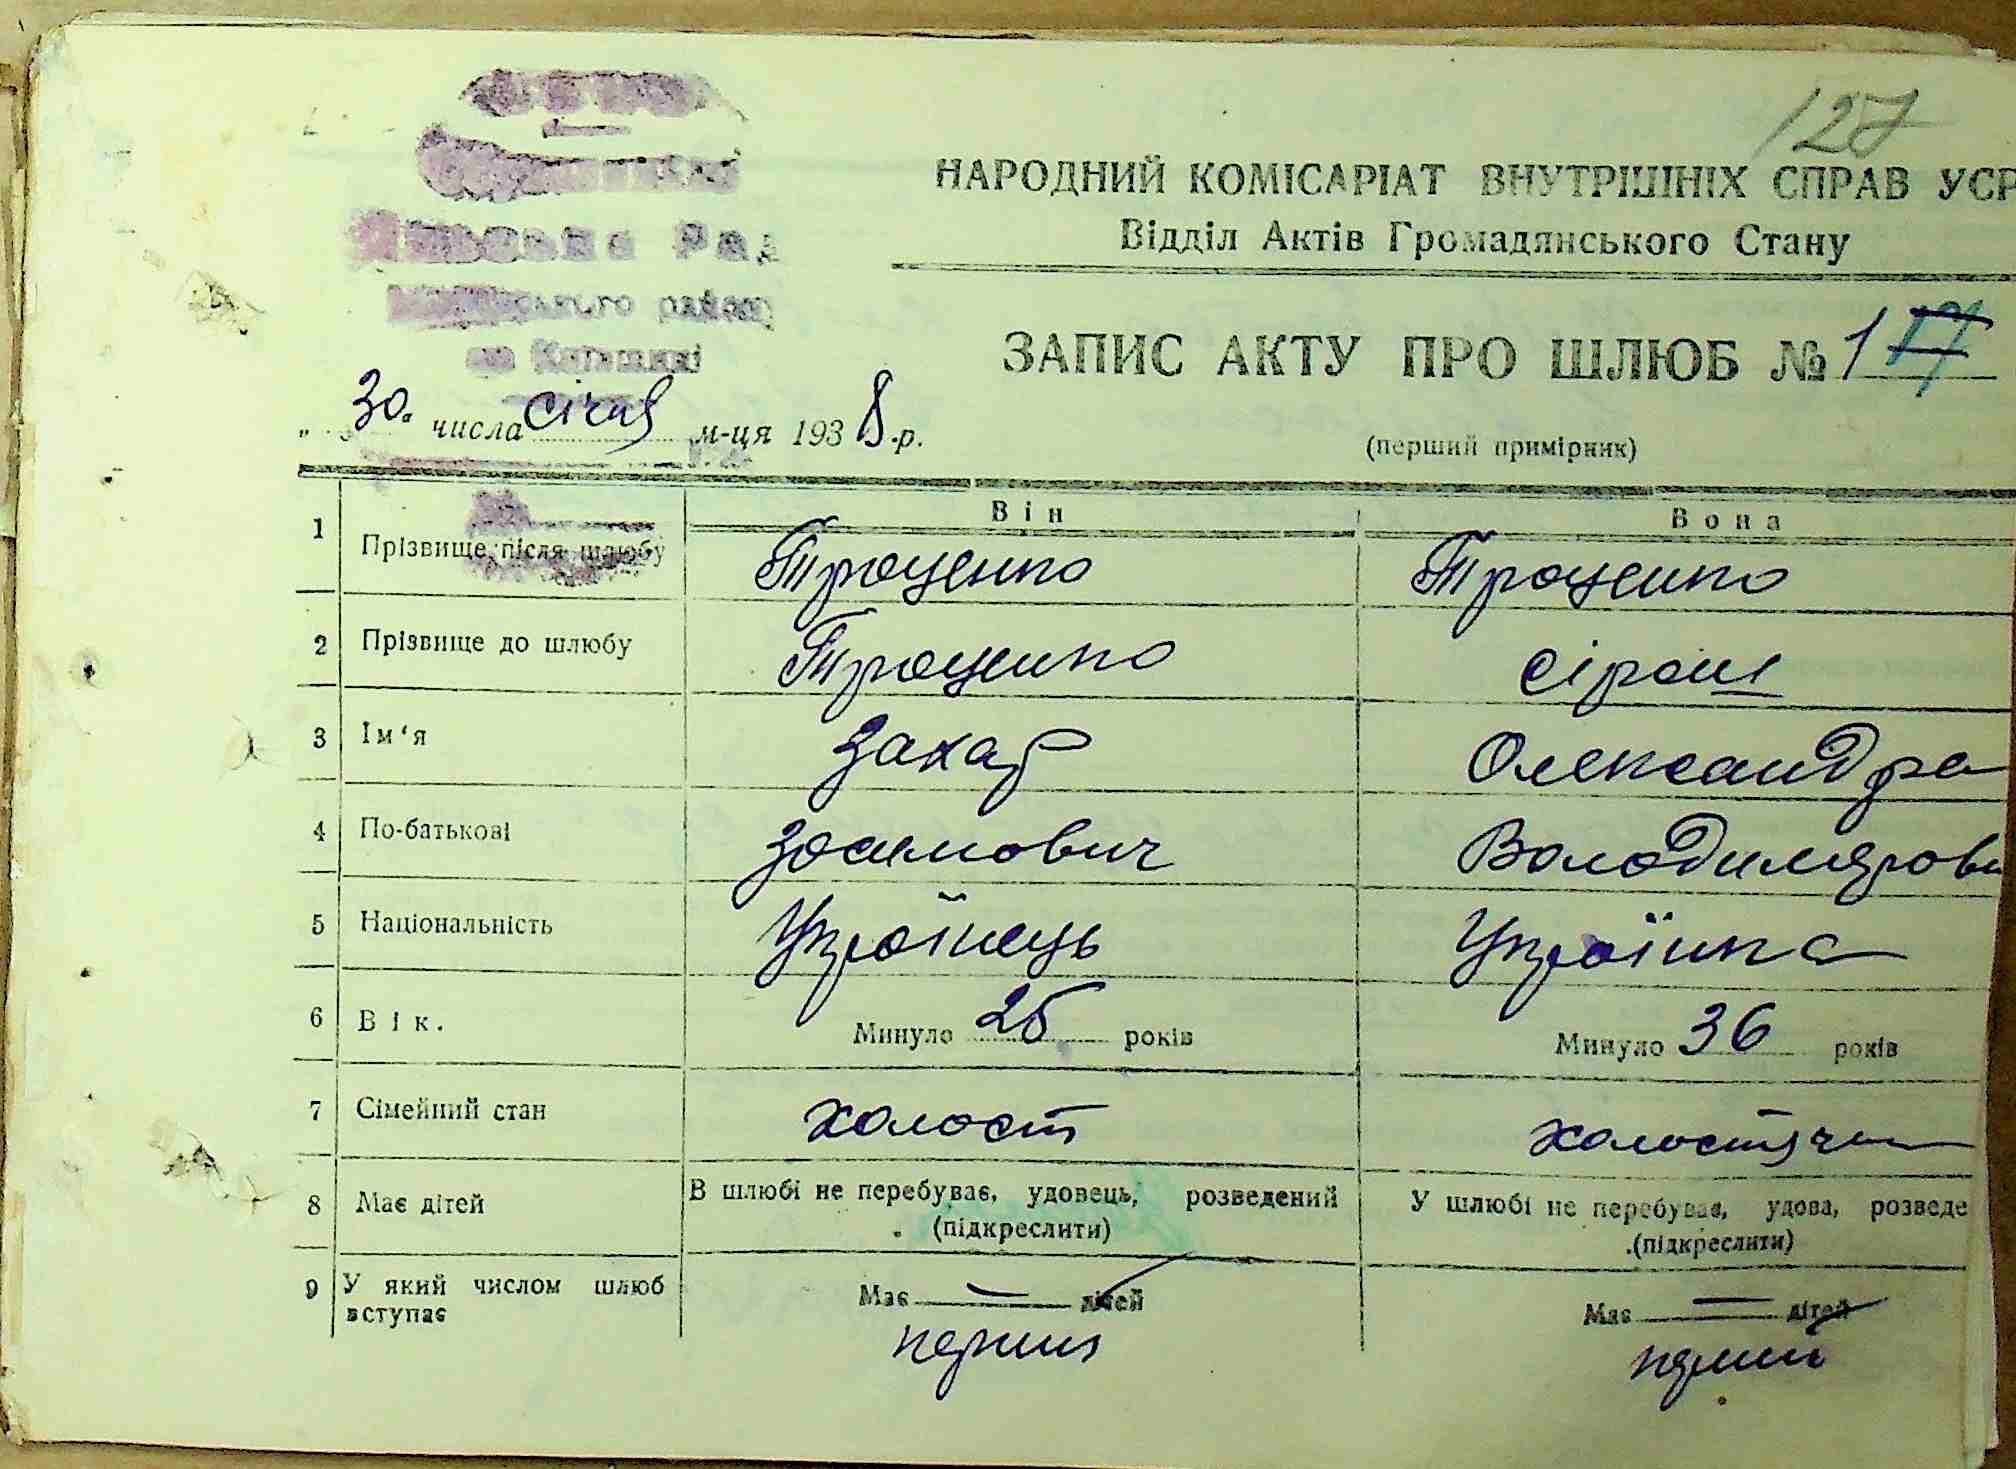 127
НАРОДНИЙ КОМІСАРІАТ ВНУТРІШНІХ СПРАВ УСР
Відділ Актів Громадянського Стану
Рад
району
на Київщині
ЗАПИС АКТУ ПРО ШЛЮБ № 1 17
„ 30. числа січня м-ця 1938 р.
(перший примірник)
Він Вона
1 Прізвище після шлюбу Троценко Троценко
2 Прізвище до шлюбу Троценко Сіраш
3 Ім‘я Захар Олександра
4 По-батькові Зосимович Володимирови
5 Національність Українець Українка
6 Вік. Минуло 25 років Минуло 36 років
7 Сімейний стан холост холостячка
8 Має дітей В шлюбі не перебуває, удовець, розведений У шлюбі не перебуває, удова, розведе
(підкреслити) (підкреслити)
9 У який числом шлюб вступає Має — дітей Має — дітей
перший перший